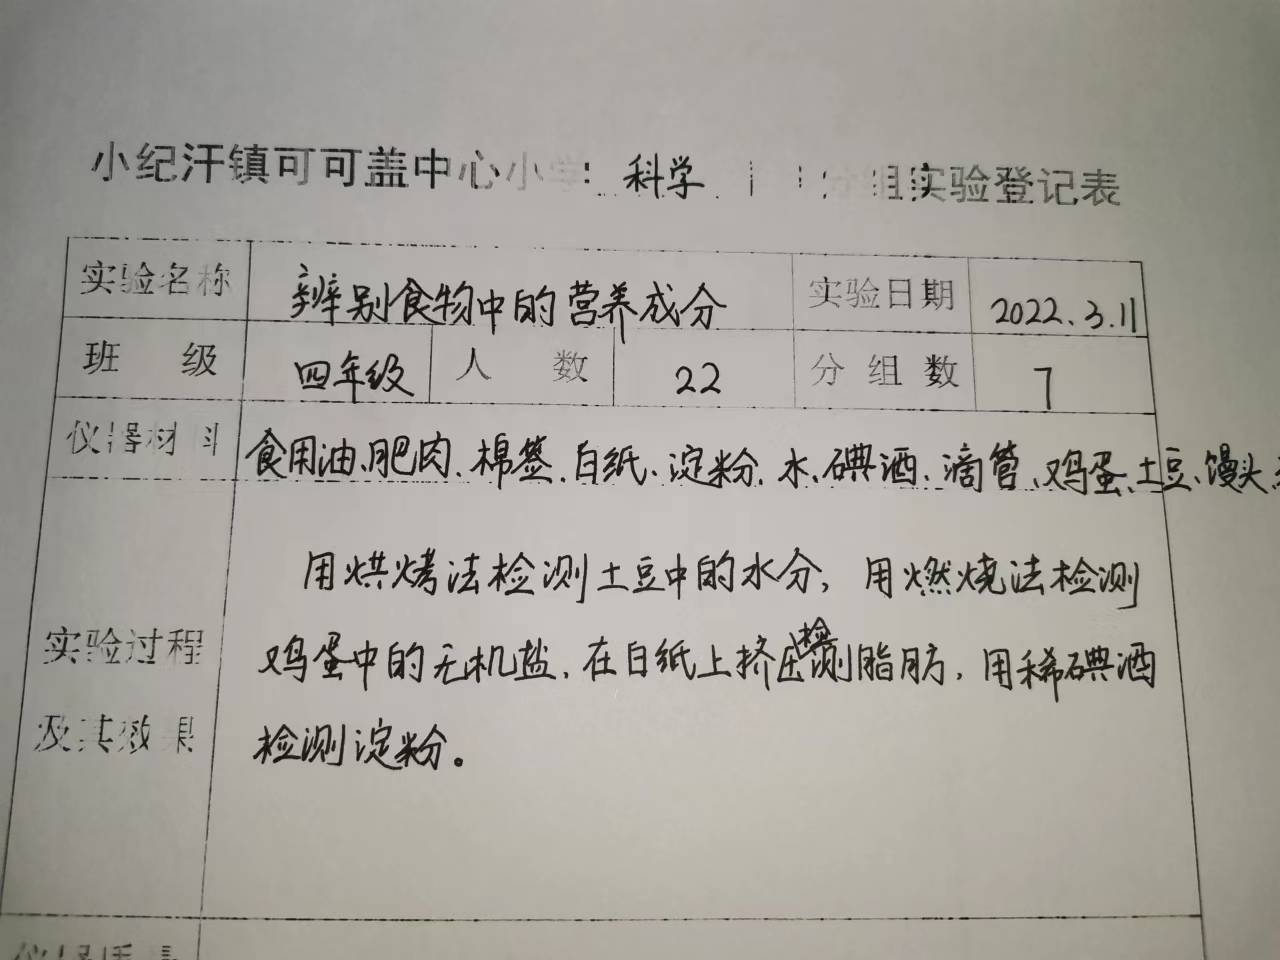 小纪汗镇可可盖中心小学 科学 分组实验登记表
实验名称 辨别食物中的营养成分 实验日期 2022.3.11
班级 四年级 人数 22 分组数 7
仪器材料 食用油、肥肉、棉签、白纸、淀粉、水、碘酒、滴管、鸡蛋、土豆、馒头、
实验过程及其效果
用烘烤法检测土豆中的水分，用燃烧法检测
鸡蛋中的无机盐，在白纸上挤压检测脂肪，用稀碘酒
检测淀粉。